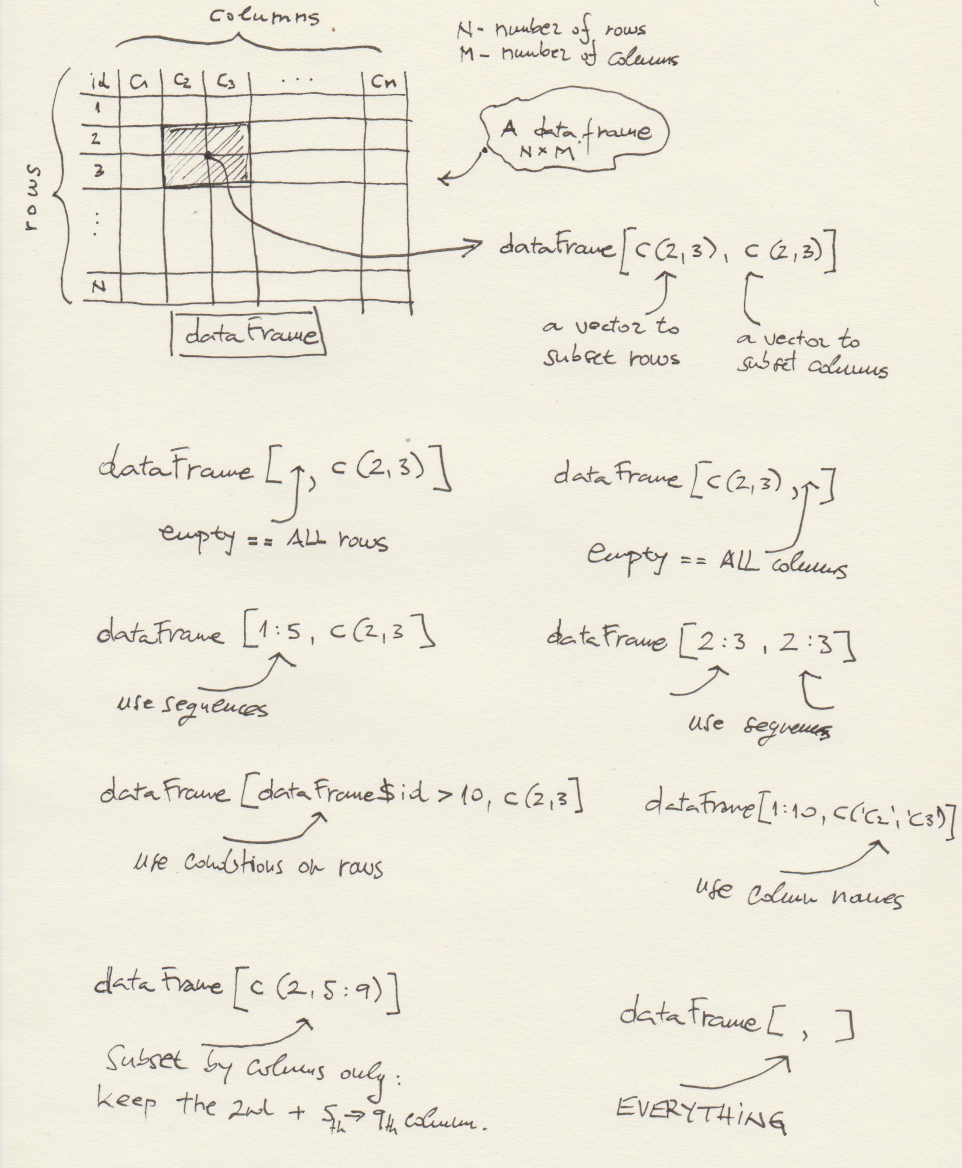 columns
N - number of rows
M - number of columns
rows
id C1 C2 C3 ... Cn
1
2
3
⋮
N
dataFrame
A data.frame
N × M
dataFrame[c(2,3), c(2,3)]
a vector to
subset rows
a vector to
subset columns
dataFrame[ , c(2,3)]
empty == ALL rows
dataFrame[c(2,3), ]
empty == ALL columns
dataFrame[1:5, c(2,3]
use sequences
dataFrame[2:3, 2:3]
use sequences
dataFrame[dataFrame$id > 10, c(2,3]
use conditions on rows
dataFrame[1:10, c('C2', 'C3')]
use column names
dataFrame[c(2, 5:9)]
Subset by columns only:
keep the 2nd + 5th → 9th column.
dataFrame[ , ]
EVERYTHING